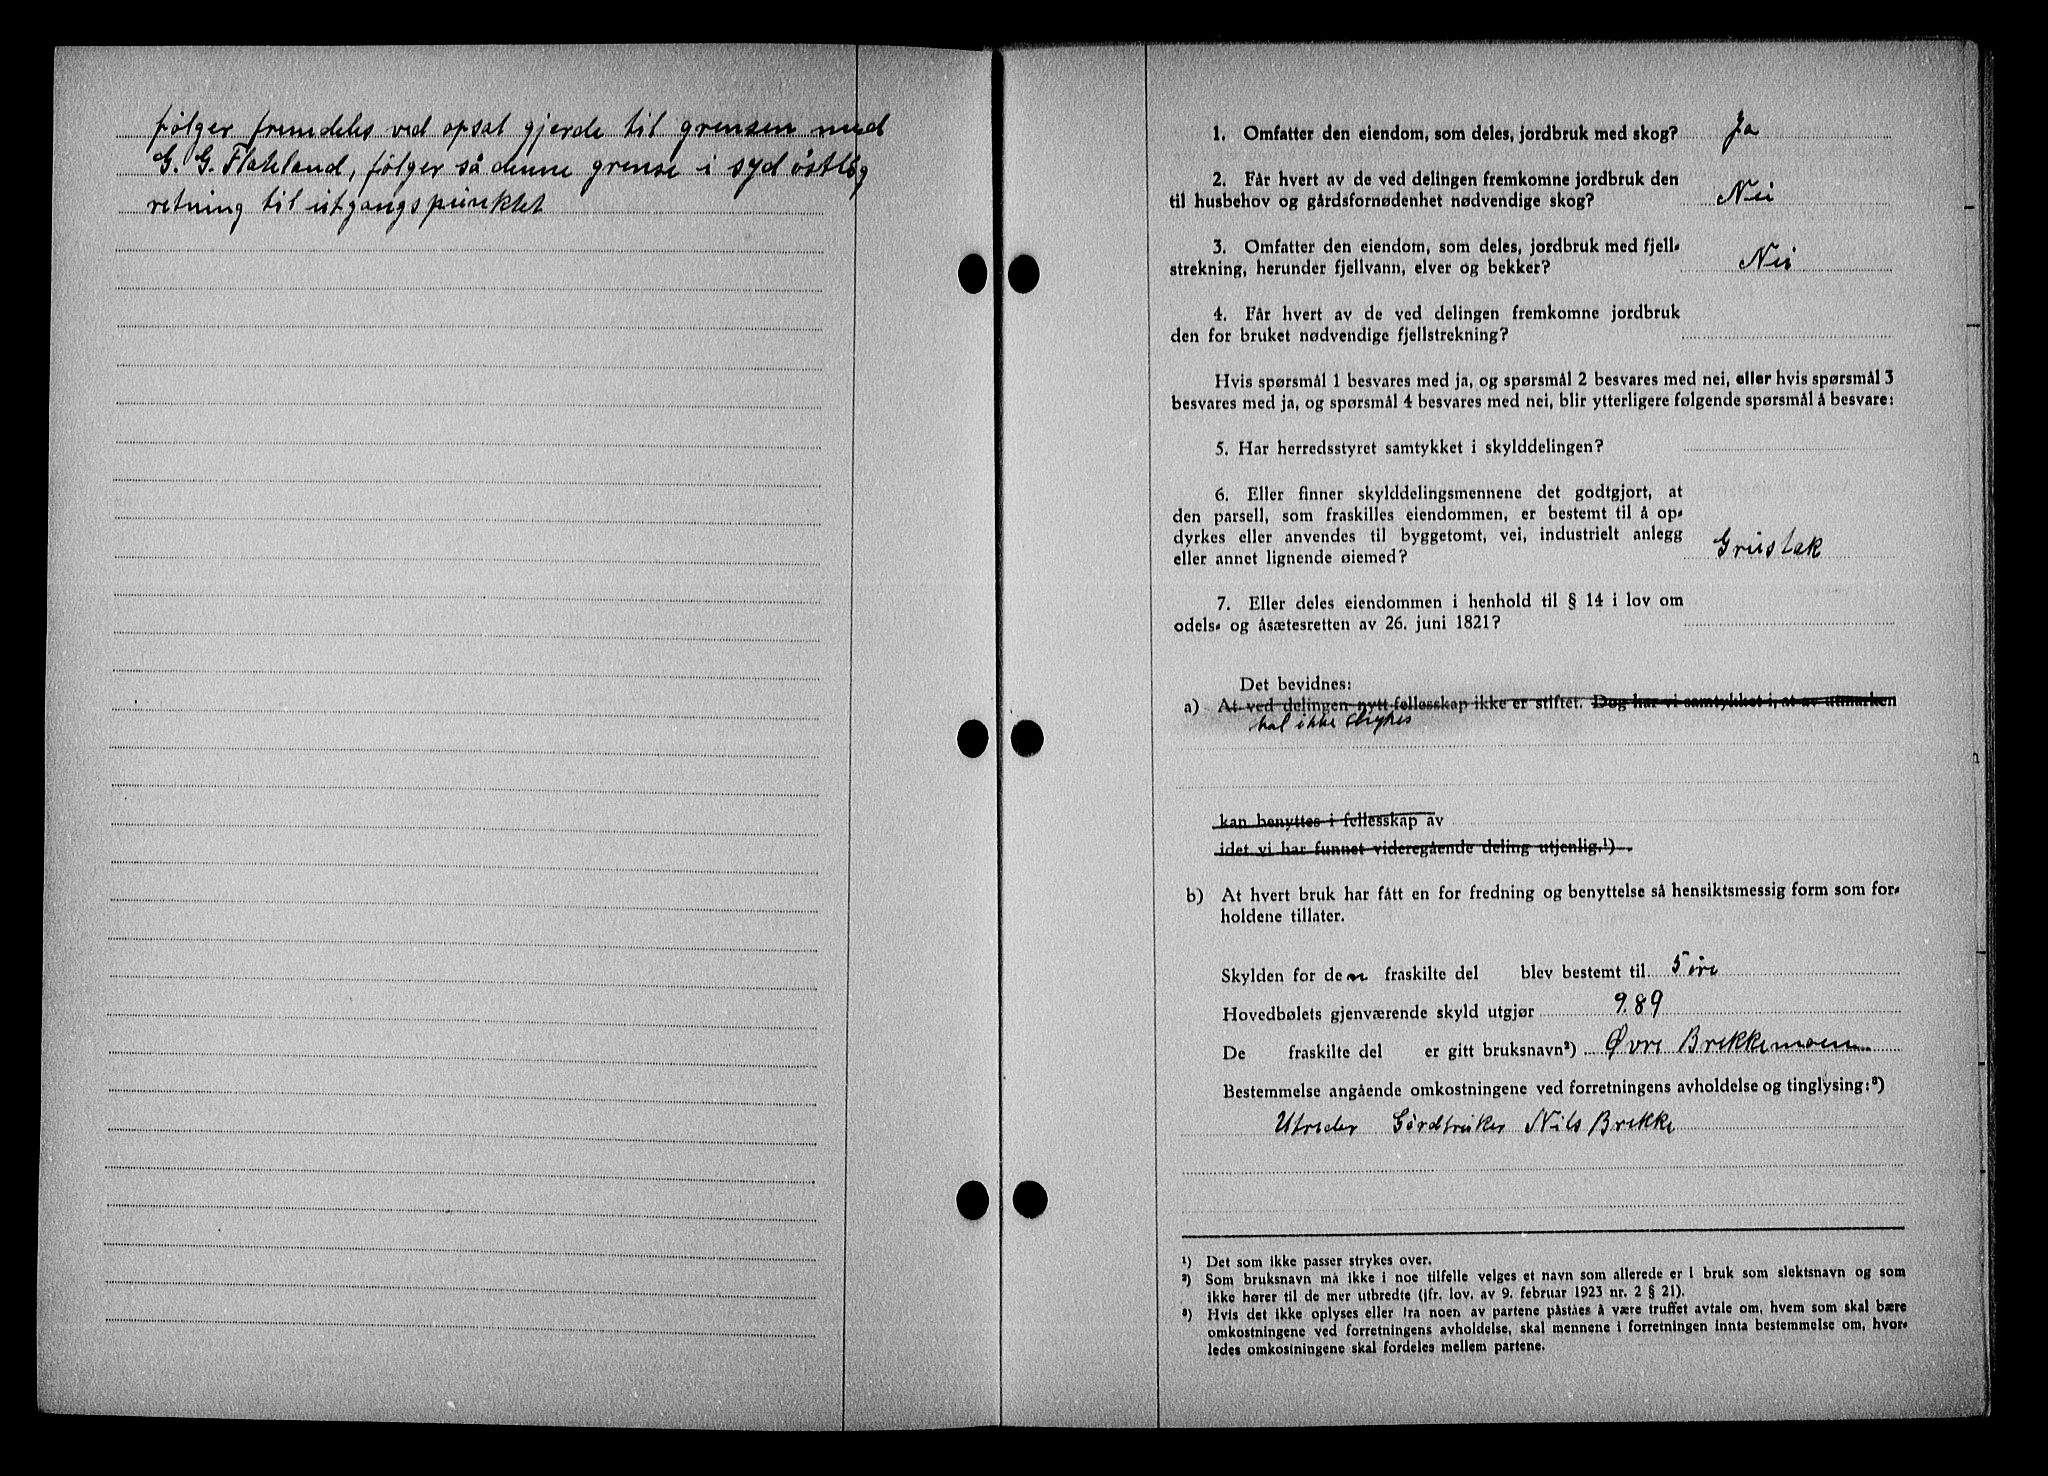 følger fremdeles ved opsat gjerde til grensen med
G. G. Flakeland, følger så denne grense i syd østlig
retning til utgangspunktet
1. Omfatter den eiendom, som deles, jordbruk med skog? Ja
2. Får hvert av de ved delingen fremkomne jordbruk den
til husbehov og gårdsfornødenhet nødvendige skog? Nei
3. Omfatter den eiendom, som deles, jordbruk med fjell-
strekning, herunder fjellvann, elver og bekker? Nei
4. Får hvert av de ved delingen fremkomne jordbruk
den for bruket nødvendige fjellstrekning?
Hvis spørsmål 1 besvares med ja, og spørsmål 2 besvares med nei, eller hvis spørsmål 3
besvares med ja, og spørsmål 4 besvares med nei, blir ytterligere følgende spørsmål å besvare:
5. Har herredsstyret samtykket i skylddelingen?
6. Eller finner skylddelingsmennene det godtgjort, at
den parsell, som fraskilles eiendommen, er bestemt til å op-
dyrkes eller anvendes til byggetomt, vei, industrielt anlegg
eller annet lignende øiemed? Grustak
7. Eller deles eiendommen i henhold til § 14 i lov om
odels- og åsætesretten av 26. juni 1821?
Det bevidnes:
a) At ved delingen nytt fellesskap ikke er stiftet. Dog har vi samtykket i, at av utmarken
ikke
kan benyttes i fellesskap av
idet vi har funnet videregående deling utjenlig.¹)
b) At hvert bruk har fått en for fredning og benyttelse så hensiktsmessig form som for-
holdene tillater.
Skylden for den fraskilte del blev bestemt til 5 øre
Hovedbølets gjenværende skyld utgjør 9.89
De fraskilte del er gitt bruksnavn²) Øvre Brekkemoen
Bestemmelse angående omkostningene ved forretningens avholdelse og tinglysing:³)
Utreder Gårdbruker Nils Brekke
¹) Det som ikke passer strykes over.
²) Som bruksnavn må ikke i noe tilfelle velges et navn som allerede er i bruk som slektsnavn og som
ikke hører til de mer utbredte (jfr. lov. av 9. februar 1923 nr. 2 § 21).
³) Hvis det ikke oplyses eller fra noen av partene påståes å være truffet avtale om, hvem som skal bære
omkostningene ved forretningens avholdelse, skal mennene i forretningen innta bestemmelse om, hvor-
ledes omkostningene skal fordeles mellem partene.